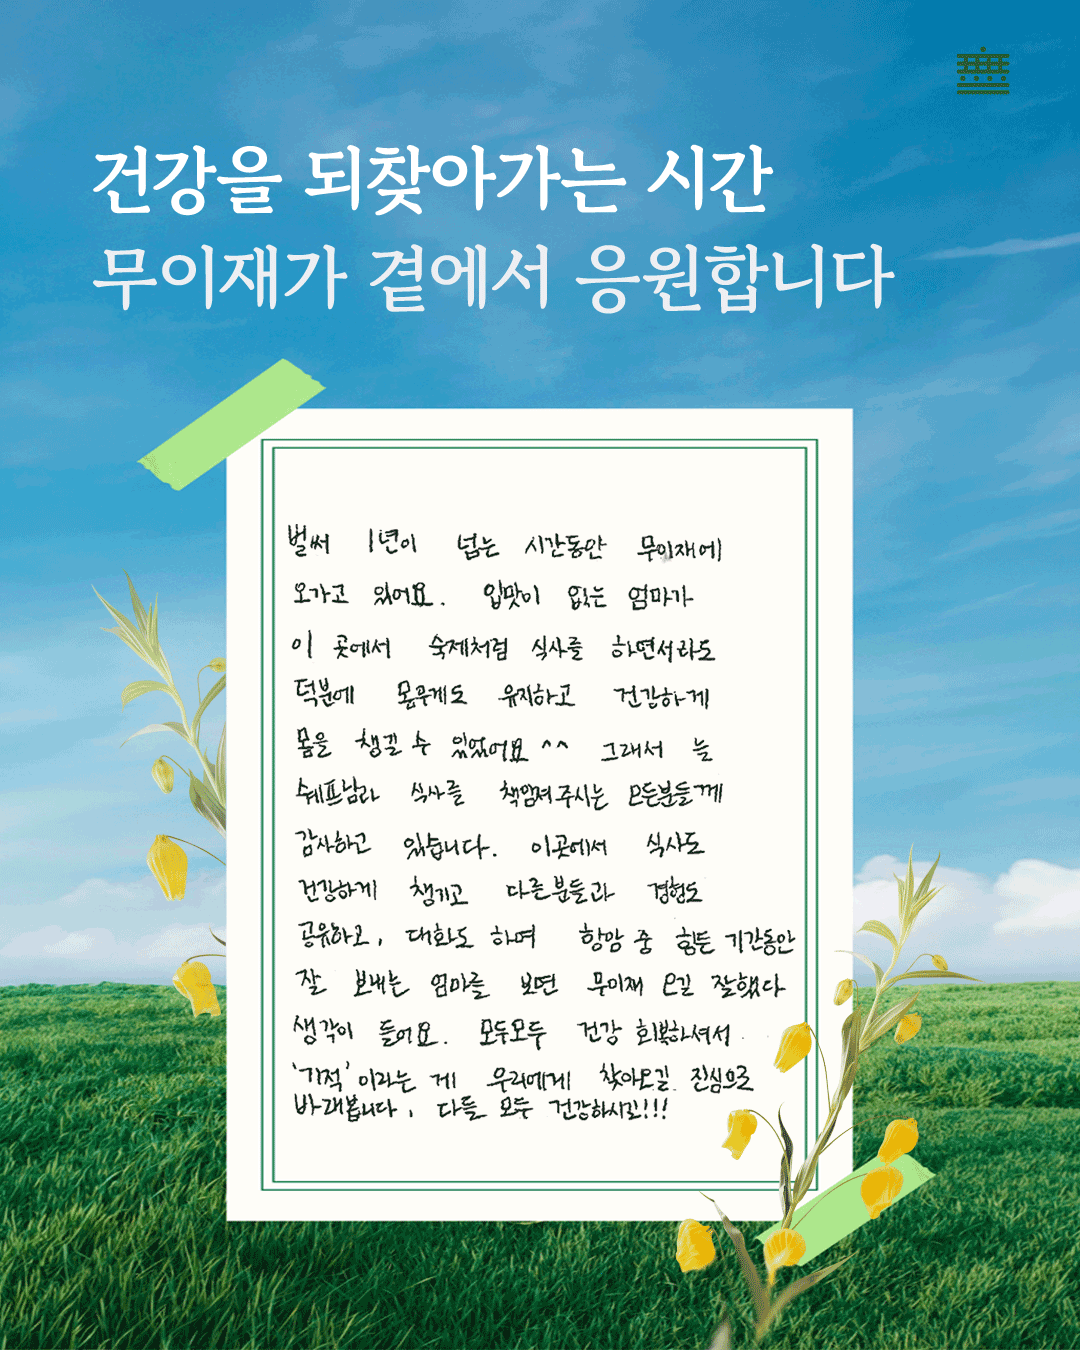 건강을 되찾아가는 시간
무이재가 곁에서 응원합니다
벌써 1년이 넘는 시간동안 무이재에
오가고 있어요. 입맛이 없는 엄마가
이 곳에서 숙제처럼 식사를 하면서라도
덕분에 몸무게도 유지하고 건강하게
몸을 챙길 수 있었어요 ^^ 그래서 늘
쉐프님과 식사를 책임져주시는 모든분들께
감사하고 있습니다. 이곳에서 식사도
건강하게 챙기고 다른분들과 경험도
공유하고, 대화도 하며 항암 중 힘든 기간동안
잘 보내는 엄마를 보면 무이재 오길 잘했다
생각이 들어요. 모두모두 건강 회복하셔서
'기적' 이라는 게 우리에게 찾아오길 진심으로
바래봅니다, 다들 모두 건강하시길!!!